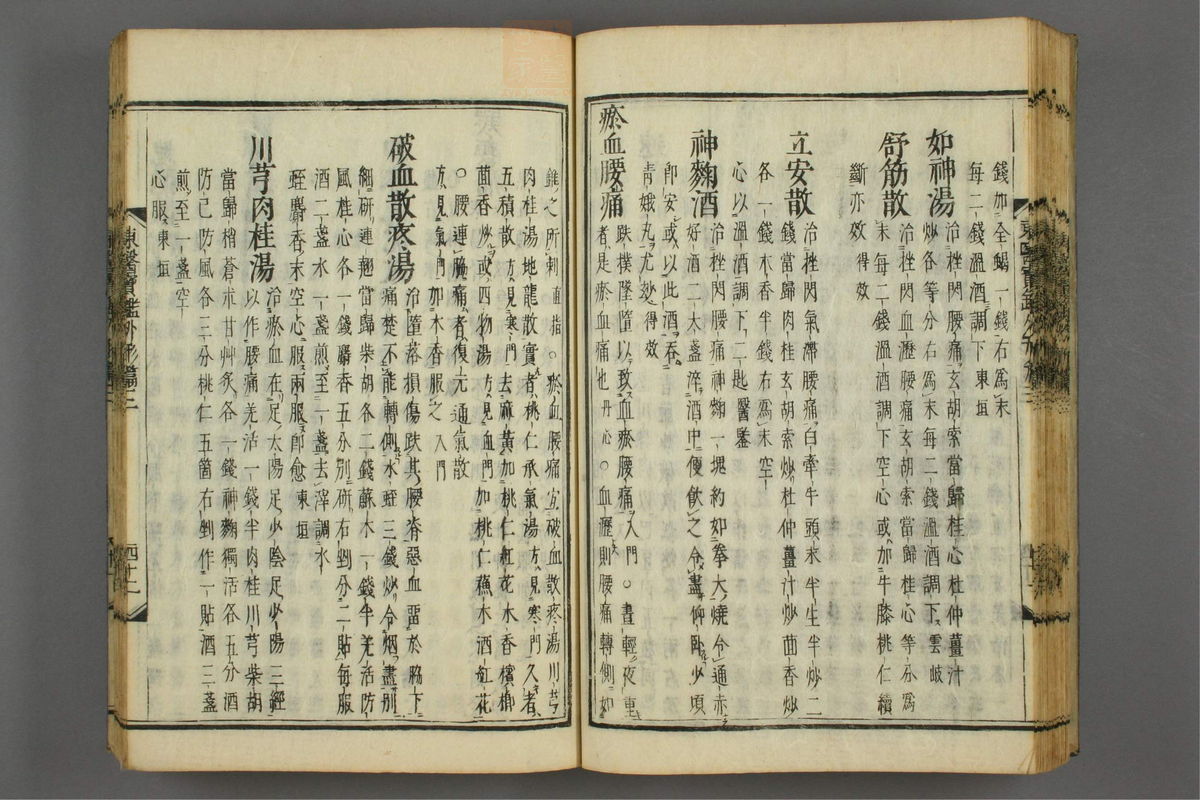 錢加全蝎一錢右爲末
每二錢溫酒調下東垣
如神湯治挫閃腰痛玄胡索當歸桂心杜仲薑汁
炒各等分右爲末每二錢溫酒調下雲岐
舒筋散治挫閃血瀝腰痛玄胡索當歸桂心等分爲
末每二錢溫酒調下空心或加牛膝桃仁續
斷亦效得效
立安散治挫閃氣滯腰痛白牽牛頭末半生半炒二
錢當歸肉桂玄胡索炒杜仲薑汁炒茴香炒
各一錢木香半錢右爲末空
心以溫酒調下二匙醫鑒
神麴酒治挫閃腰痛神麴一塊約如拳大燒令通赤
好酒二大盞淬酒中便飮之令盡仰臥少頃
卽安或以此酒吞
靑娥丸尤妙得效
瘀血腰痛跌撲墜墮以致血瘀腰痛入門○晝輕夜重
者是瘀血痛也丹心○血瀝則腰痛轉側如
錐之所刺直指○瘀血腰痛宜破血散疼湯川芎
肉桂湯地龍散實者桃仁承氣湯方見寒門久者
五積散方見寒門去麻黃加桃仁紅花木香檳榔
茴香炒或四物湯方見血門加桃仁蘇木酒紅花
○腰連脇痛者復元通氣散
方見氣門加木香服之入門
破血散疼湯治墮落損傷跌其腰脊惡血留於脇下
痛楚不能轉側水蛭三錢炒令烟盡別
細硏連翹當歸柴胡各二錢蘇木一錢半羌活防
風桂心各一錢麝香五分別硏右剉分二貼每服
酒二盞水一盞煎至一盞去滓調水
蛭麝香末空心服兩服卽愈東垣
川芎肉桂湯治瘀血在足太陽足少陰足少陽三經
以作腰痛羌活一錢半肉桂川芎柴胡
當歸梢蒼朮甘艸灸各一錢神麴獨活各五分酒
防己防風各三分桃仁五箇右剉作一貼酒三盞
煎至一盞空
心服東垣
東醫寶鑑外形篇三